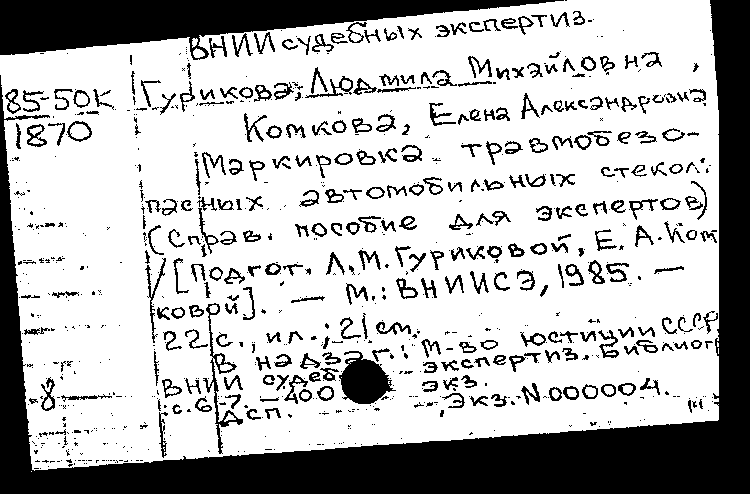 ВНИИ судебных экспертиз.
85-50К
1870
Гурикова, Людмила Михайловна,
Комкова, Елена Александровна
Маркировка травмобезо-
пасных автомобильных стекол:
(Справ. пособие для экспертов)
/ [Подгот. Л.М. Гуриковой, Е.А. Ком
ковой]. — М.: ВНИИСЭ, 1985. —
22 с., ил.; 21 см.
В надзаг.: М-во юстиции СССР
ВНИИ судеб экспертиз. Библиогр
с. 6-7. — 400 экз.
Дсп. —, Экз. N 000004.
8